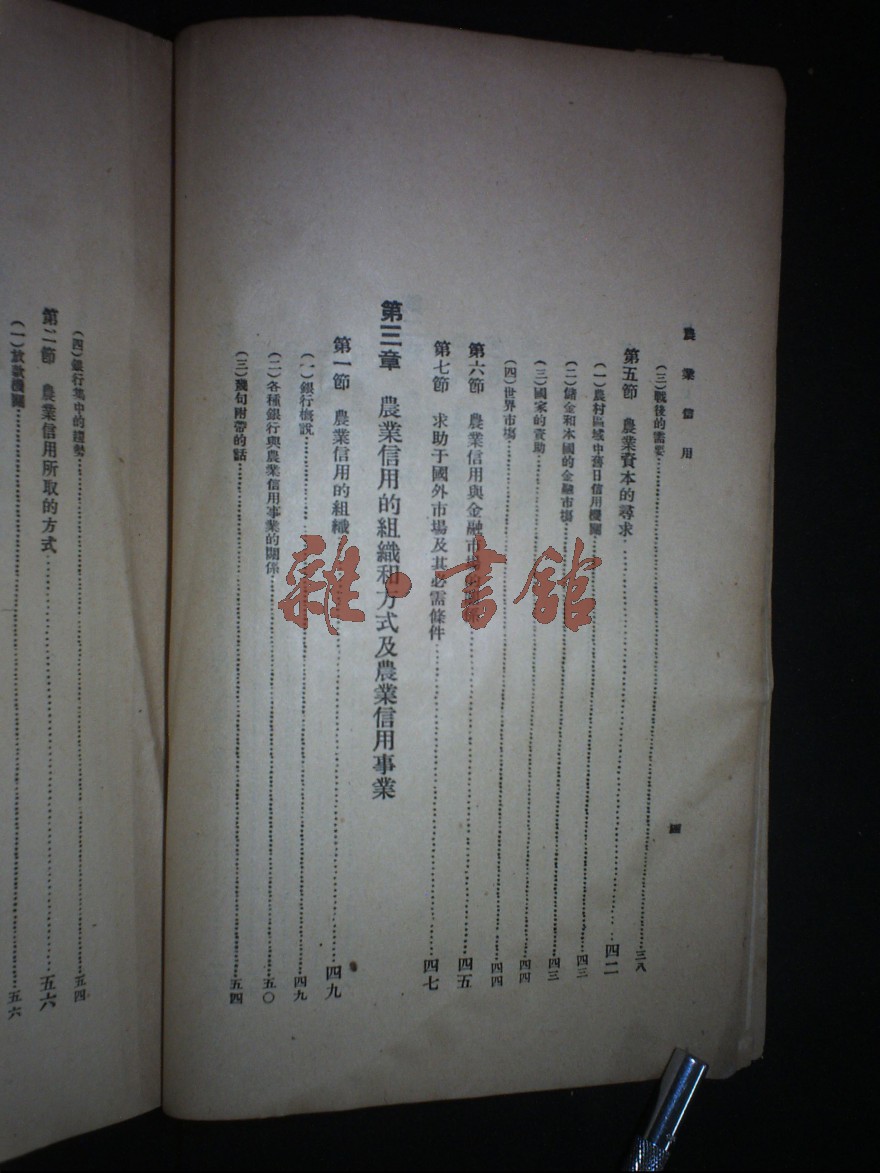 農業信用
(三)戰後的需要……三八
第五節 農業資本的尋求……四二
(一)農村區域中舊日信用機關……四三
(二)儲金和本國的金融市場……四三
(三)國家的資助……四四
(四)世界市場……四四
第六節 農業信用與金融市場……四五
第七節 求助于國外市場及其必需條件……四七
第三章 農業信用的組織和方式及農業信用事業
第一節 農業信用的組織……四九
(一)銀行概說……四九
(二)各種銀行與農業信用事業的關係……五〇
(三)幾句附帶的話……五四
四
(四)銀行集中的趨勢……五四
第二節 農業信用所取的方式……五六
(一)放款機關……五六
雜·書館